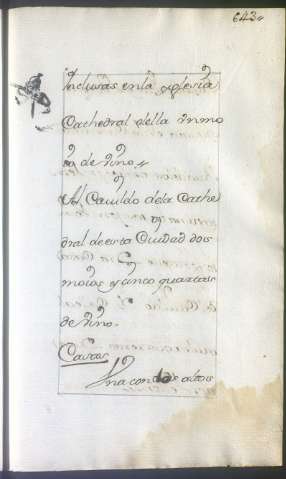 642
Inclusas en la yglesia
Cathedral della vn mo
io de vino
Al Cauildo de la Cathe
dral de esta Ciudad dos
moios y cinco quartas
de vino.
Casas
Vna con dos altos